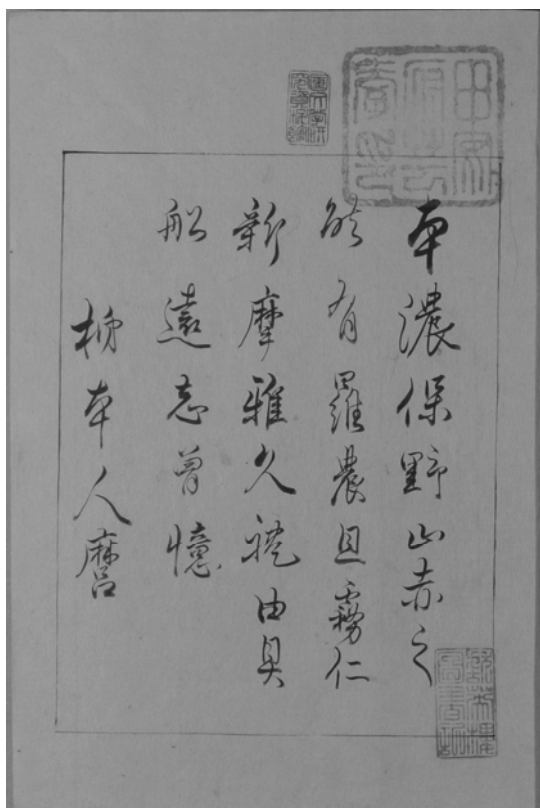 本濃保野山赤之
能有羅農且霧仁
新摩雅久禮由具
船遠志曽憶
柿本人麿